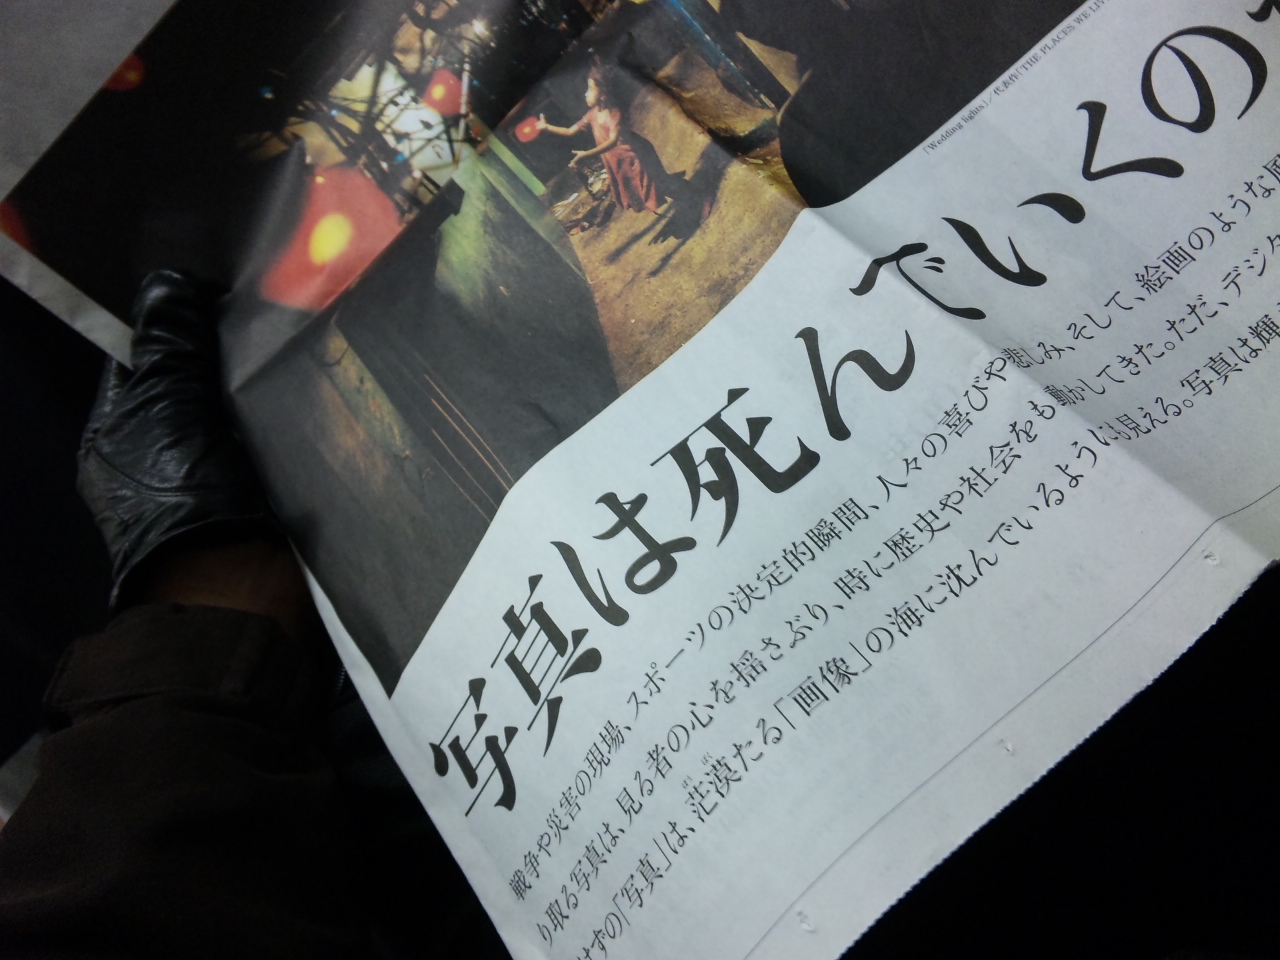 「Wedding lights」／代表作「THE PLACES WE LIV
写真は死んでいくの
戦争や災害の現場、スポーツの決定的瞬間、人々の喜びや悲しみ、そして、絵画のような風
り取る写真は、見る者の心を揺さぶり、時に歴史や社会をも動かしてきた。ただ、デジタ
はずの「写真」は、茫漠たる「画像」の海に沈んでいるようにも見える。写真は輝